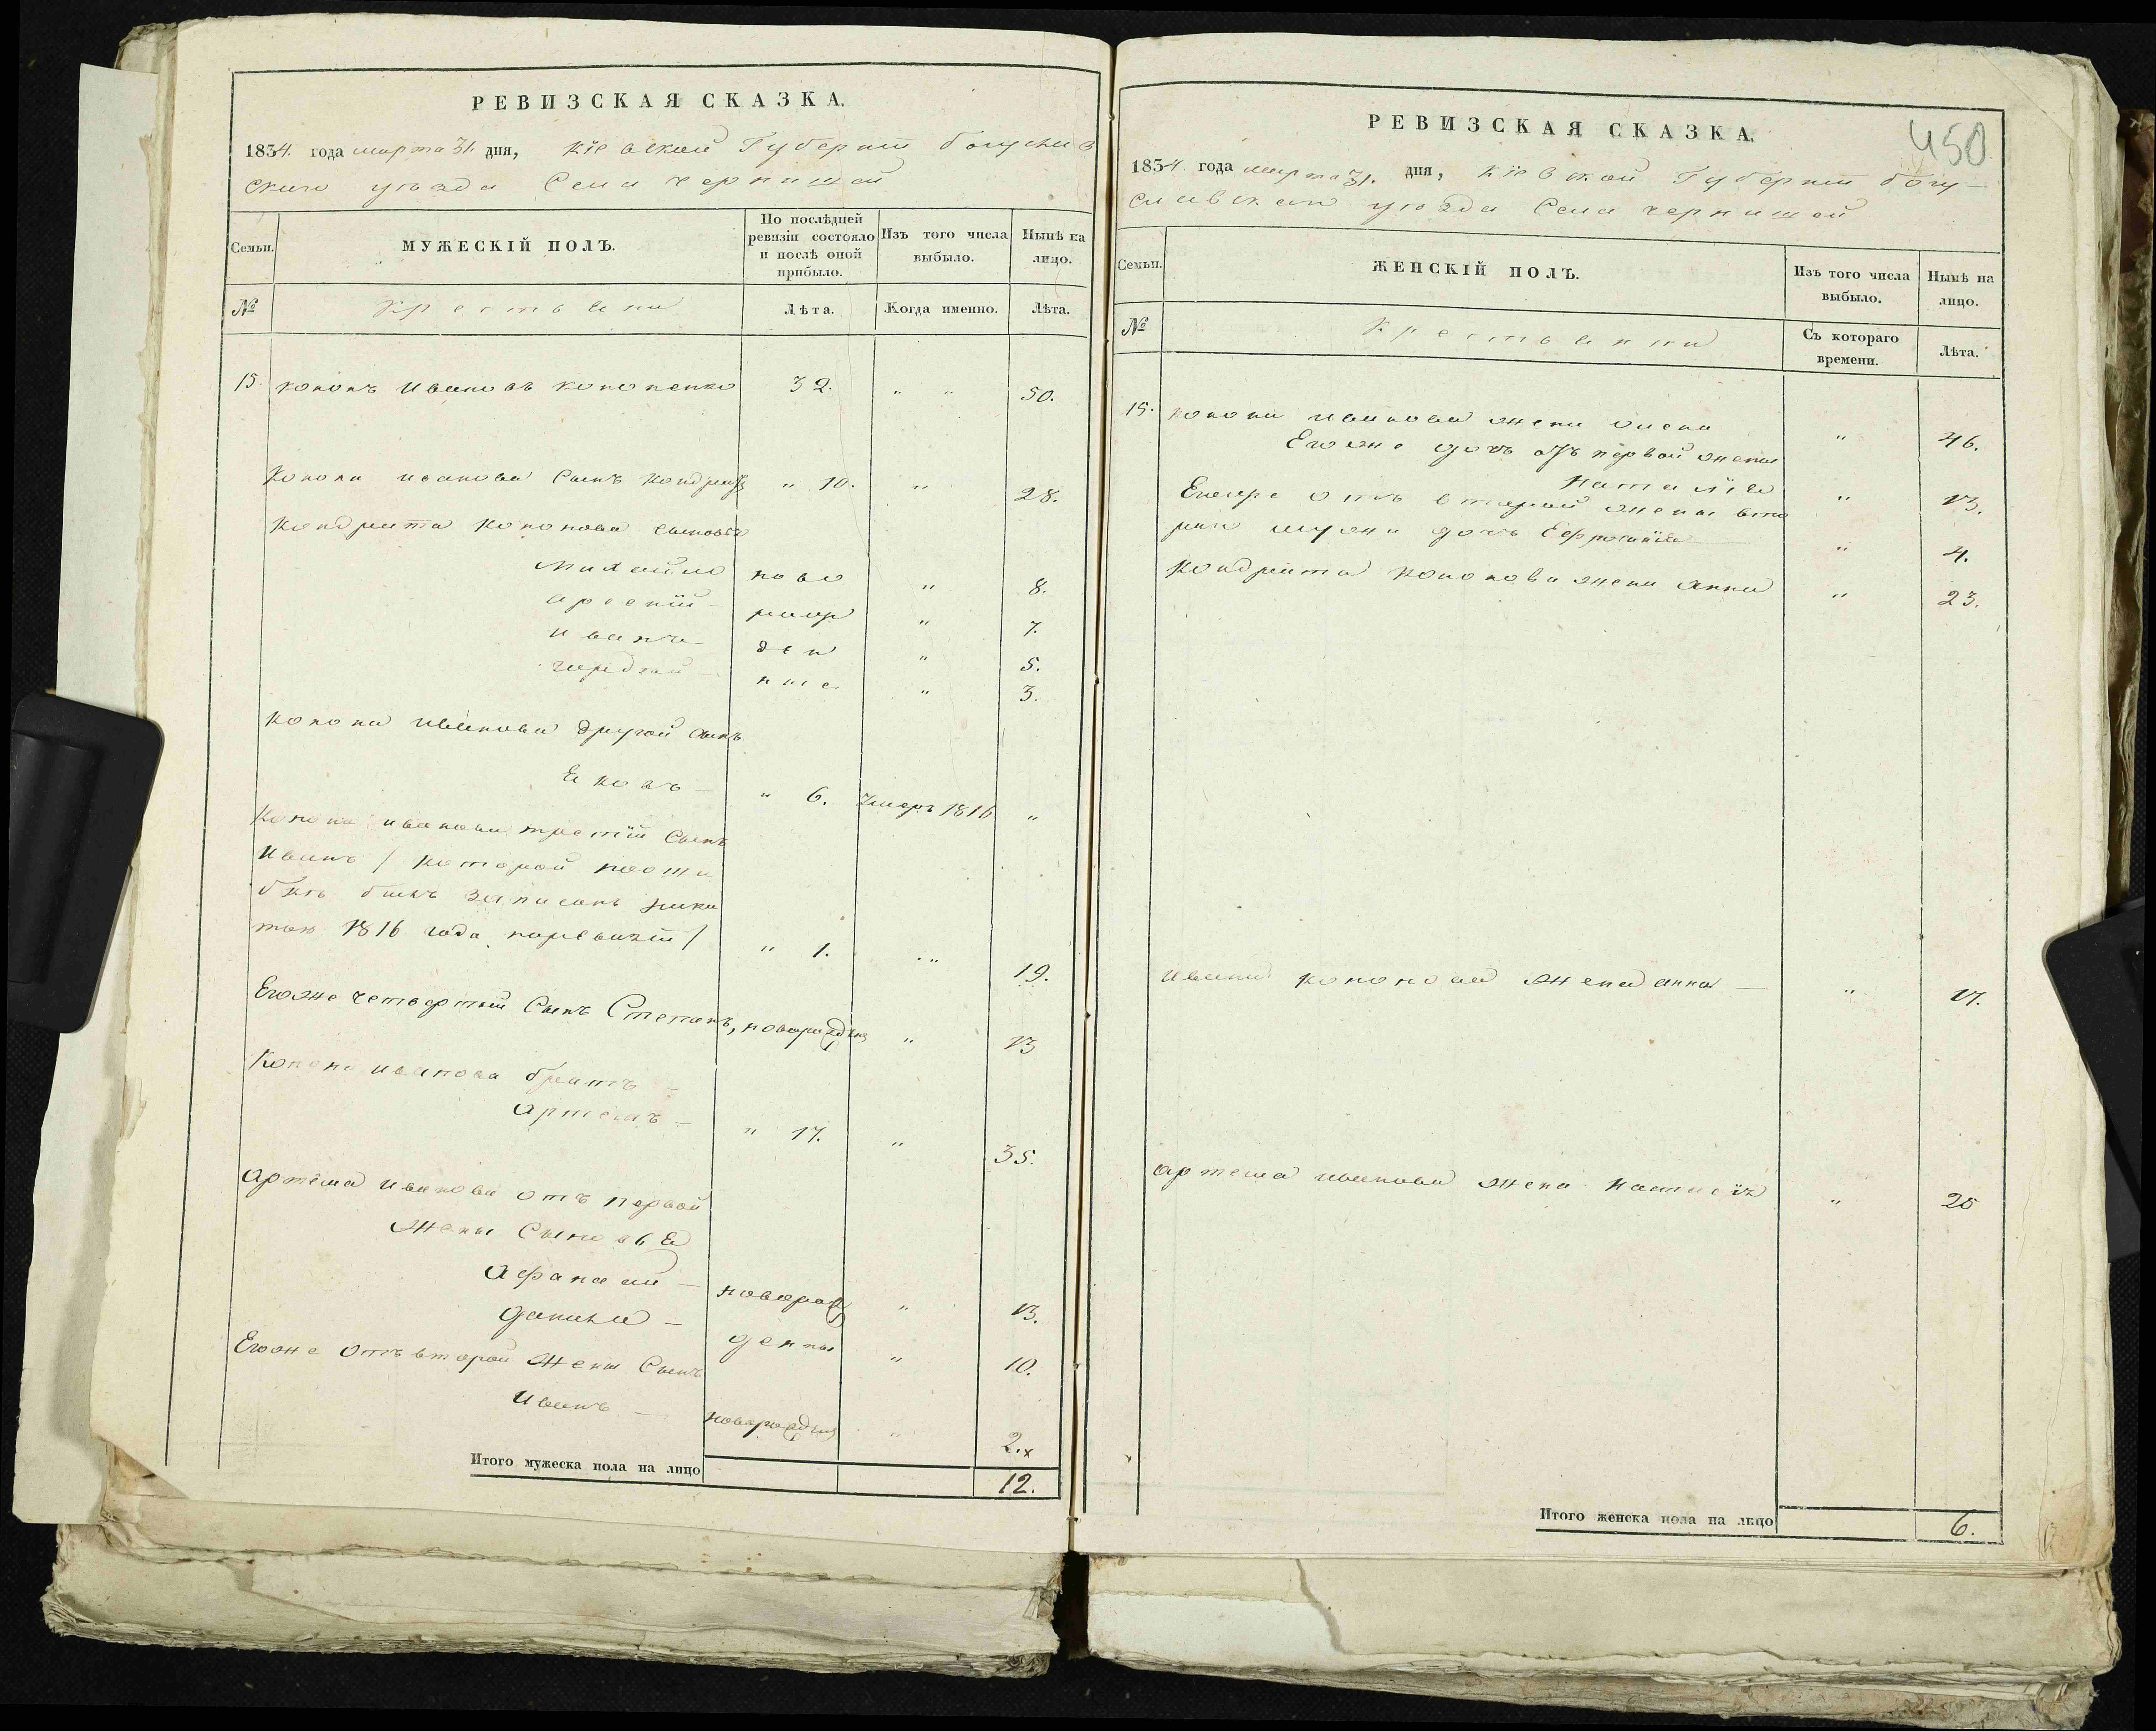 РЕВИЗСКАЯ СКАЗКА.
1834. года марта 31. дня, Кіевской Губерніи богуслав
скаго уѣзда Села чернишей
Семьи.
МУЖЕСКІЙ ПОЛЪ.
По послѣдней ревизіи состояло и послѣ оной прибыло.
Изъ того числа выбыло.
Нынѣ на лицо.
№
Крестьяни
Лѣта.
Когда именно.
Лѣта.
15. кононъ Ивановъ кононенко 32. " " 50.
Конона иванова Сынъ Кондратъ " 10. " 28.
Кондрата Кононова сыновья
Михайло ново " 8.
арсеній рож " 7.
иванъ ден " 5.
гордѣй ные " 3.
конона иванова другой сынъ
Яковъ " 6. Умеръ 1816 "
Конона иванова третій Сынъ
Иванъ / которой по оши
бкѣ билъ записанъ Мики
тою 1816 года поревизіи / " 1. " 19.
Егоже четвертый Сынъ Степанъ, новорожденъ " 13
Конона иванова братъ
артемъ " 17. " 35.
артема иванова отъ первой
жены Сыновья
Афанасий новорож " 13.
данило денны " 10.
Егоже отъ второй жены Сынъ
Иванъ новорожденъ " 2.х
Итого мужеска пола на лицо 12.
450
РЕВИЗСКАЯ СКАЗКА.
1834 года марта 31. дня, Кіевской Губерніи богу-
славскаго уѣзда Села чернишей
Семьи.
ЖЕНСКІЙ ПОЛЪ.
Изъ того числа выбыло.
Нынѣ на лицо.
№
Крестьянки
Съ котораго времени.
Лѣта.
15. конона иванова жена " 46.
Егоже дочь отъ первой жены
Наталія " 13.
отъ второй жены вто
раго мужа дочь Ефросинія " 4.
Кондрата Кононова жена анна " 23.
Ивана кононова жена анна " 17.
артема иванова жена настасія " 25
Итого женска пола на лицо 6.